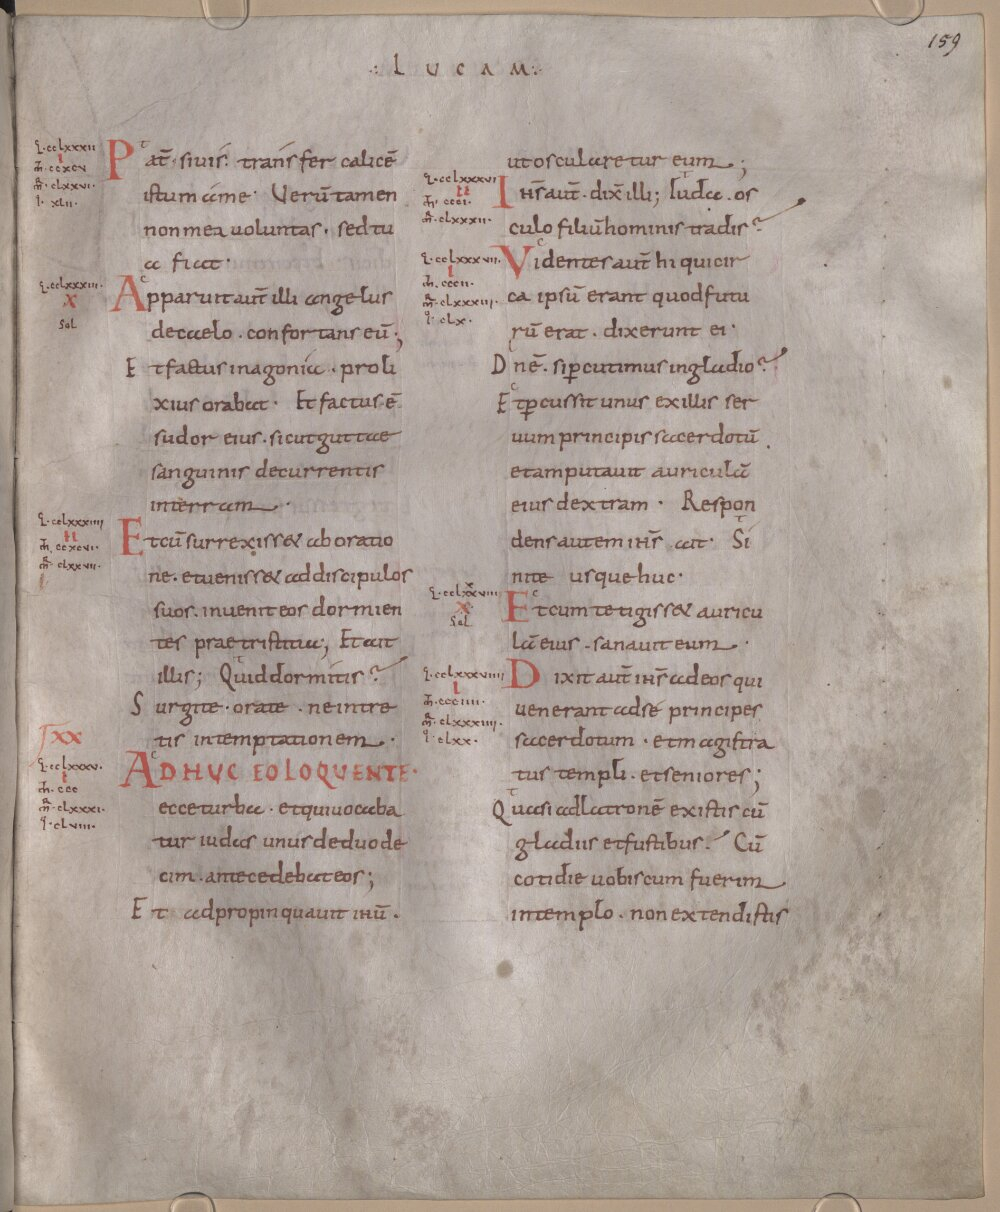 159
.: LUCAM :.
L·cclxxxii
I
m̄·ccxcv
m̄r·clxxvi·
I·xlii·
Pat̄·siuis· transfer calicē
istum ame· Verūtamen
non mea uoluntas· sed tu
a fiat·
L·cclxxxiii·
X
Sol
Apparuit aut̄ illi angelus
decaelo· confortans eū·,
Et factus in agonia· proli
xius orabat· Et factus ē
sudor eius· sicut guttae
sanguinis decurrentis
in terram·
L·cclxxxiiii
II
m̄·ccxcvi·
m̄r·clxxvii·
Et cū surrexiss& ab oratio
ne· et ueniss& ad discipulos
suos· inuenit eos dormien
tes prae tristitia; Et ait
illis; Quid dormitis?
Surgite· orate· ne intre
tis in temptationem·
XX
L·cclxxxv·
I
m̄·ccc
m̄r·clxxxi·
I·clviii·
ADHUC EO LOQUENTE·
ecce turba· et qui uocaba
tur iudas unus de duode
cim· antecedebat eos;
Et adpropinquauit ihū·
ut oscularetur eum;
L·cclxxxvi
II
m̄·ccci·
m̄r·clxxxii·
Ihs̄ aut̄· dix̄ illi; Iuda· os
culo filiū hominis tradis?
L·cclxxxvii·
I
m̄·cccii·
m̄r·clxxxiii·
I·clx·
Videntes aut̄ hi qui cir
ca ipsū erant quod futu
rū erat· dixerunt ei·
Dnē· si ꝑcutimus in gladio?
Et ꝑcussit unus ex illis ser
uum principis sacerdotū·
et amputauit auriculā
eius dextram· Respon
dens autem ihs̄ ait· Si
nite usque huc·
L·cclxxxviii
X
Sol·
Et cum tetigiss& auricu
lā eius· sanauit eum·
L·cclxxxviiii
I
m̄·ccciiii·
m̄r·clxxxiiii·
I·clxx·
Dixit aut̄ ihs̄ ad eos qui
uenerant ad sé principes
sacerdotum· et magistra
tus templi· et seniores;
Quasi ad latronē existis cū
gladiis et fustibus? Cū
cotidie uobiscum fuerim
in templo· non extendistis